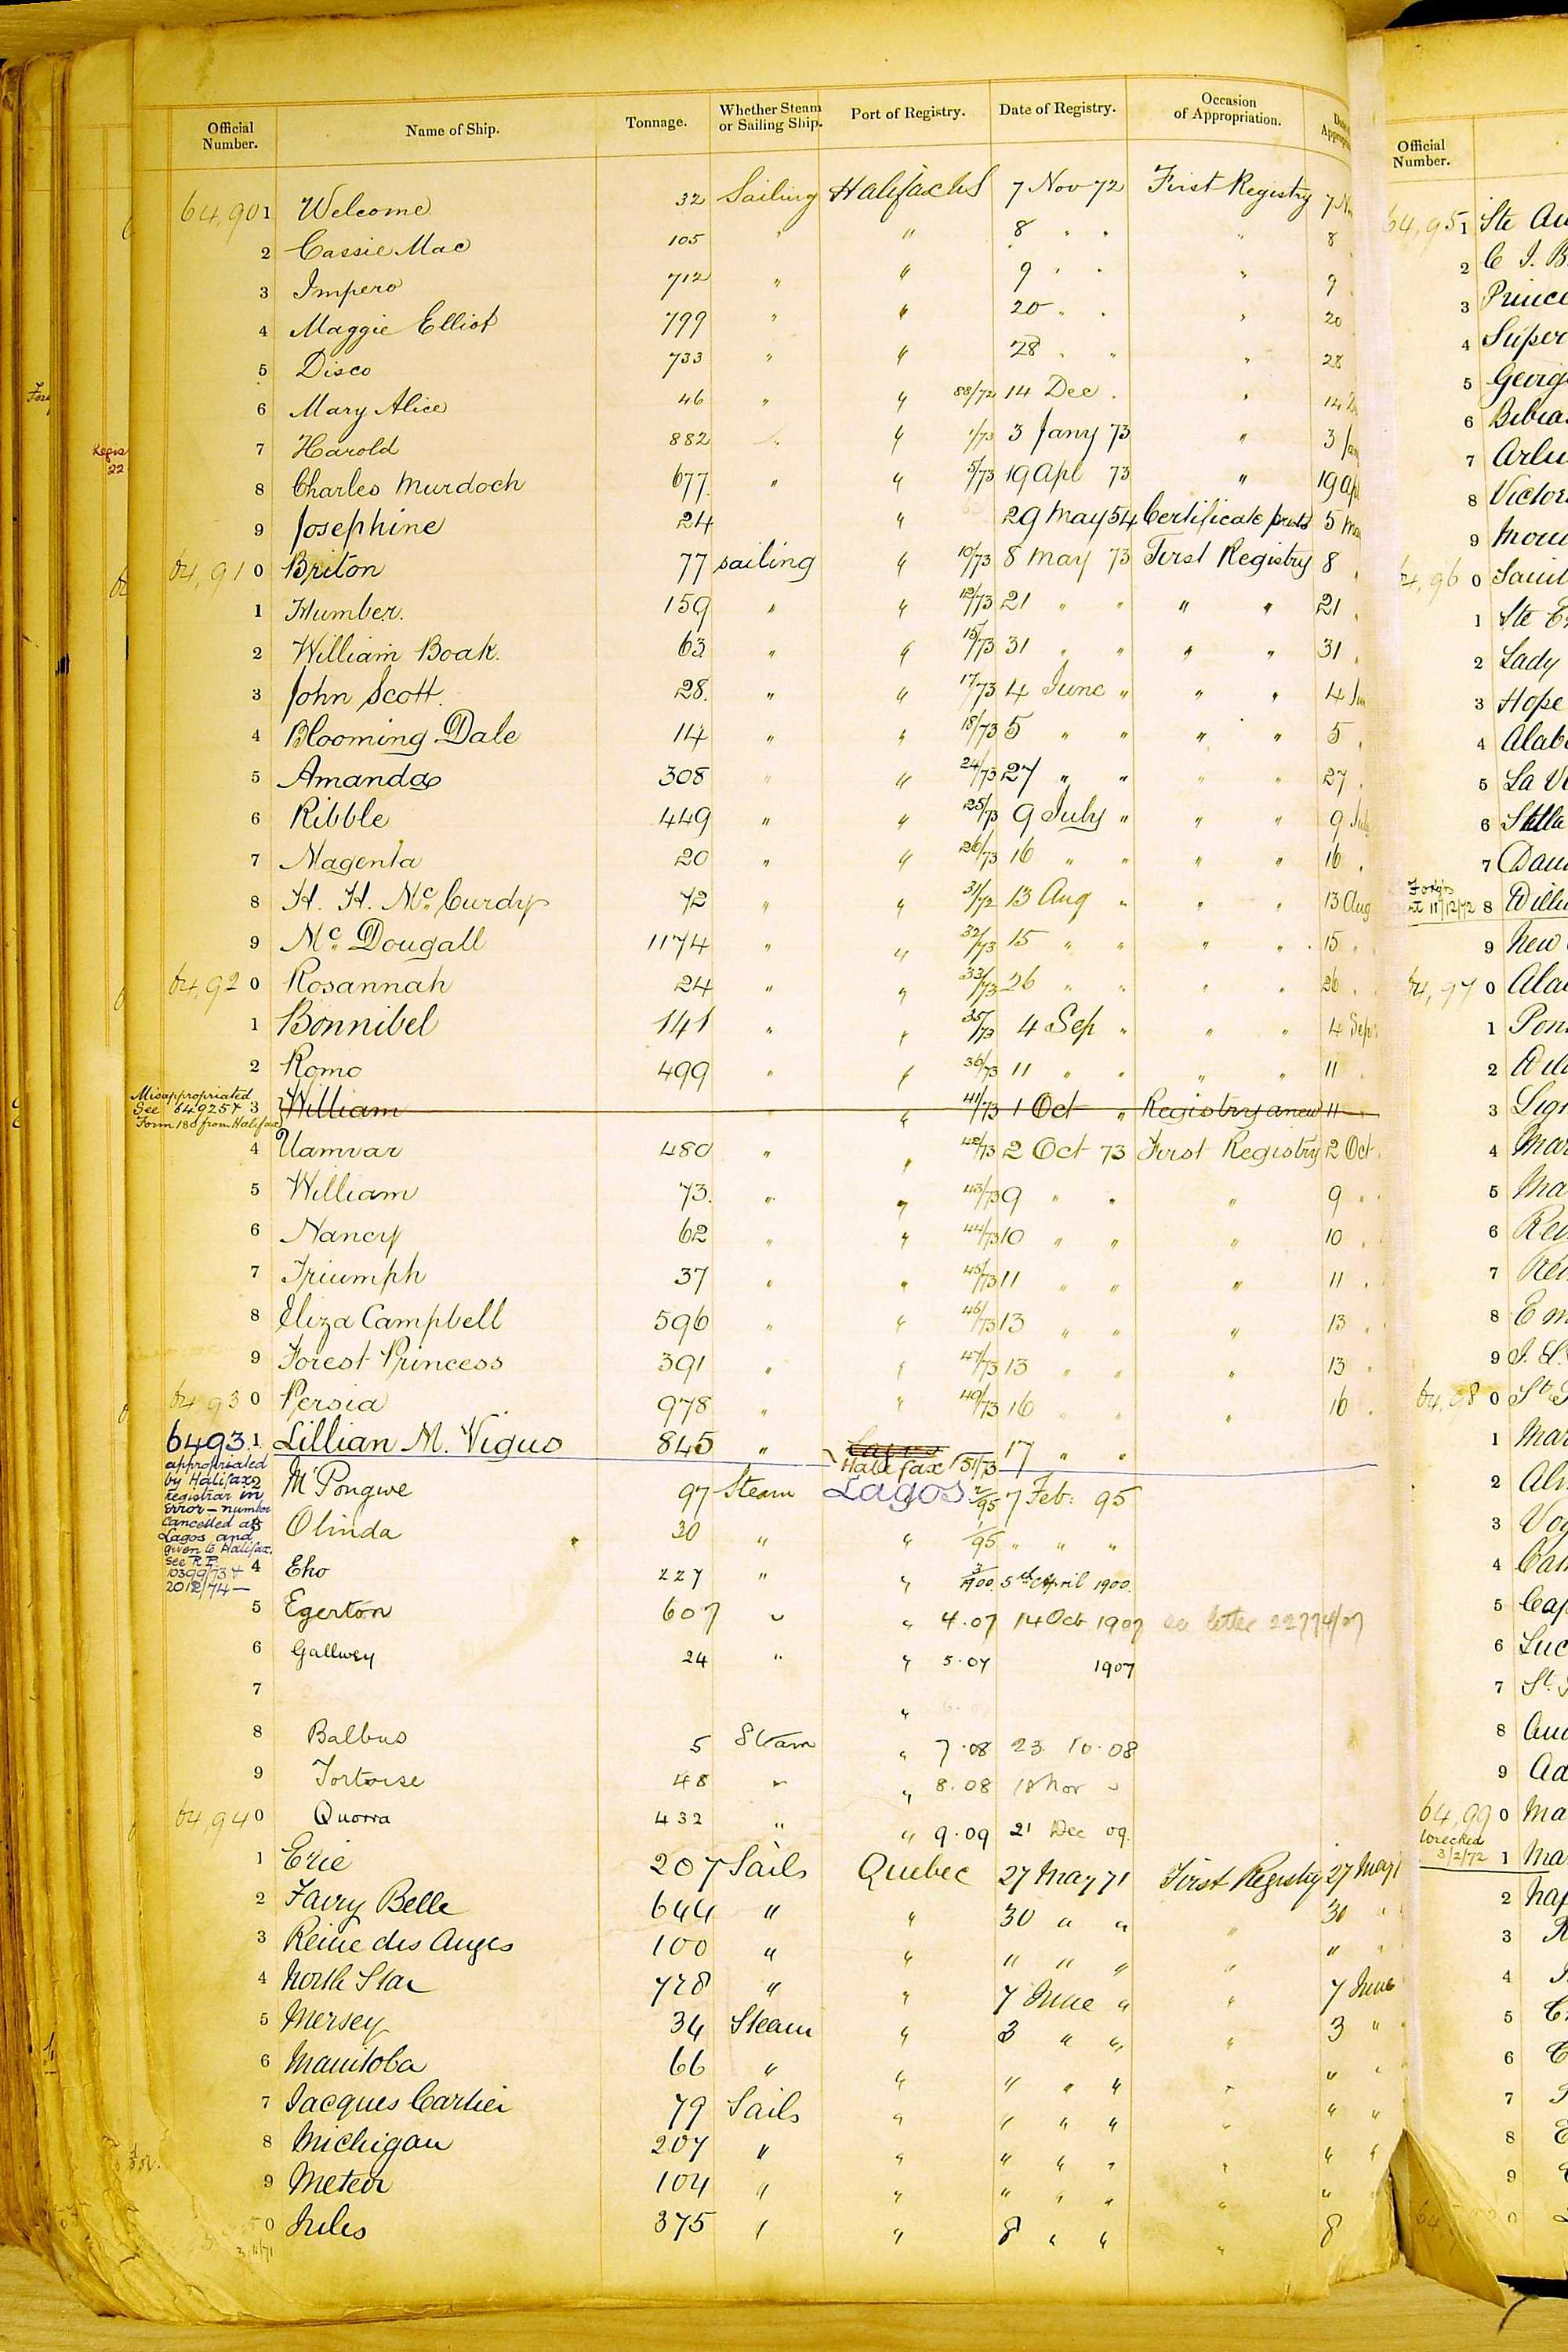 Official Number. Name of Ship. Tonnage. Whether Steam or Sailing Ship. Port of Registry. Date of Registry. Occasion of Appropriation.
64,901 Welcome 32 Sailing Halifax NS 7 Nov 72 First Registry 7
2 Cassie Mac 105 " " 8 " " " 8
3 Impero 712 " " 9 " " " 9
4 Maggie Elliot 799 " " 20 " " " 20
5 Disco 733 " " 28 " " " 28
6 Mary Alice 46 " " 88/72 14 Dec " " 14
7 Harold 882 " " 1/73 3 Jany 73 " 3
8 Charles Murdoch 677 " " 5/73 19 Apl 73 " 19 Apl
9 Josephine 24 " 29 May 54 Certificate 5
64,910 Briton 77 sailing " 10/73 8 May 73 First Registry 8
1 Humber. 159 " " 12/73 21 " " " " 21
2 William Boak. 63 " " 15/73 31 " " " " 31
3 John Scott. 28. " " 17/73 4 June " " " 4
4 Blooming Dale 114 " " 18/73 5 " " " " 5
5 Amanda 308 " " 24/73 27 " " " " 27
6 Ribble 449 " " 25/73 9 July " " " 9
7 Magenta 20 " " 26/73 16 " " " " 16
8 H. H. McCurdy 72 " " 31/72 13 Aug " " " 13 Aug
9 Mc Dougall 1174 " " 32/73 15 " " " " 15
64,920 Rosannah 24 " " 33/73 26 " " " " 26
1 Bonnibel 141 " " 35/73 4 Sep " " " 4 Sep
2 Romo 499 " " 36/73 11 " " " " 11
Misappropriated
See 64925 &
Form 180 from Halifax
3 William " 41/73 1 Oct " Registry anew 11
4 Uamvar 480 " " 42/73 2 Oct 73 First Registry 2 Oct
5 William 73. " " 43/73 9 " " " 9
6 Nancy 62 " " 44/73 10 " " " 10
7 Triumph 37 " " 45/73 11 " " " 11
8 Eliza Campbell 596 " " 46/73 13 " " " 13
9 Forest Princess 391 " " 47/73 13 " " " 13
64,930 Persia 978 " " 49/73 16 " " " 16
64931 Lillian M. Vigus 845 " Lagos Halifax 51/73 17 " "
appropriated
by Halifax
registrar in
Error – number
cancelled at
Lagos and
given to Halifax.
See R.P.
10399/73 &
2012/74 —
2 M'Pongwe 97 Steam Lagos 2/95 7 Feb: 95
3 Olinda 30 " " 1/95 " " "
4 Eko 227 " " 3/1900 5th April 1900.
5 Egerton 607 " " 4.07 14 Oct 1907 letter 22774/07
6 Gallwey 24 " " 5.07 1907
7 "
8 Balbus 5 Steam " 7.08 23. 10.08
9 Tortoise 48 " " 8.08 18 Nov "
64,940 Quorra 432 " " 9.09 21 Dec 09.
1 Erie 207 Sails Quebec 27 May 71 First Registry 27 May
2 Fairy Belle 644 " " 30 " " " 30 "
3 Reine des Anges 100 " " " " " " " "
4 North Star 728 " " 7 June " " 7 June
5 Mersey 34 Steam " 3 " " " 3 "
6 Manitoba 66 " " " " " " " "
7 Jacques Cartier 79 Sails " " " " " " "
8 Michigan 207 " " " " " " " "
9 Meteor 104 " " " " " " "
50 Jules 375 " " 8 " " " 8
Official Number.
64,951 Ste
2 C. J. B
3 Prince
4 Super
5 Georg
6
7
8 Victor
9
64,960
1 Ste
2 Lady
3 Hope
4 Alab
5 La
6 Stella
7
11/12/72 8
9 New
64,970
1
2
3
4 Mar
5 Ma
6
7
8
9
64,980 St
1 Mar
2
3 Voy
4
5 Cap
6 Luc
7 St.
8
9 Ad
64,990 Ma
Wrecked
3/2/72 1 Ma
2 Nap
3
4
5
6
7
8
9
0